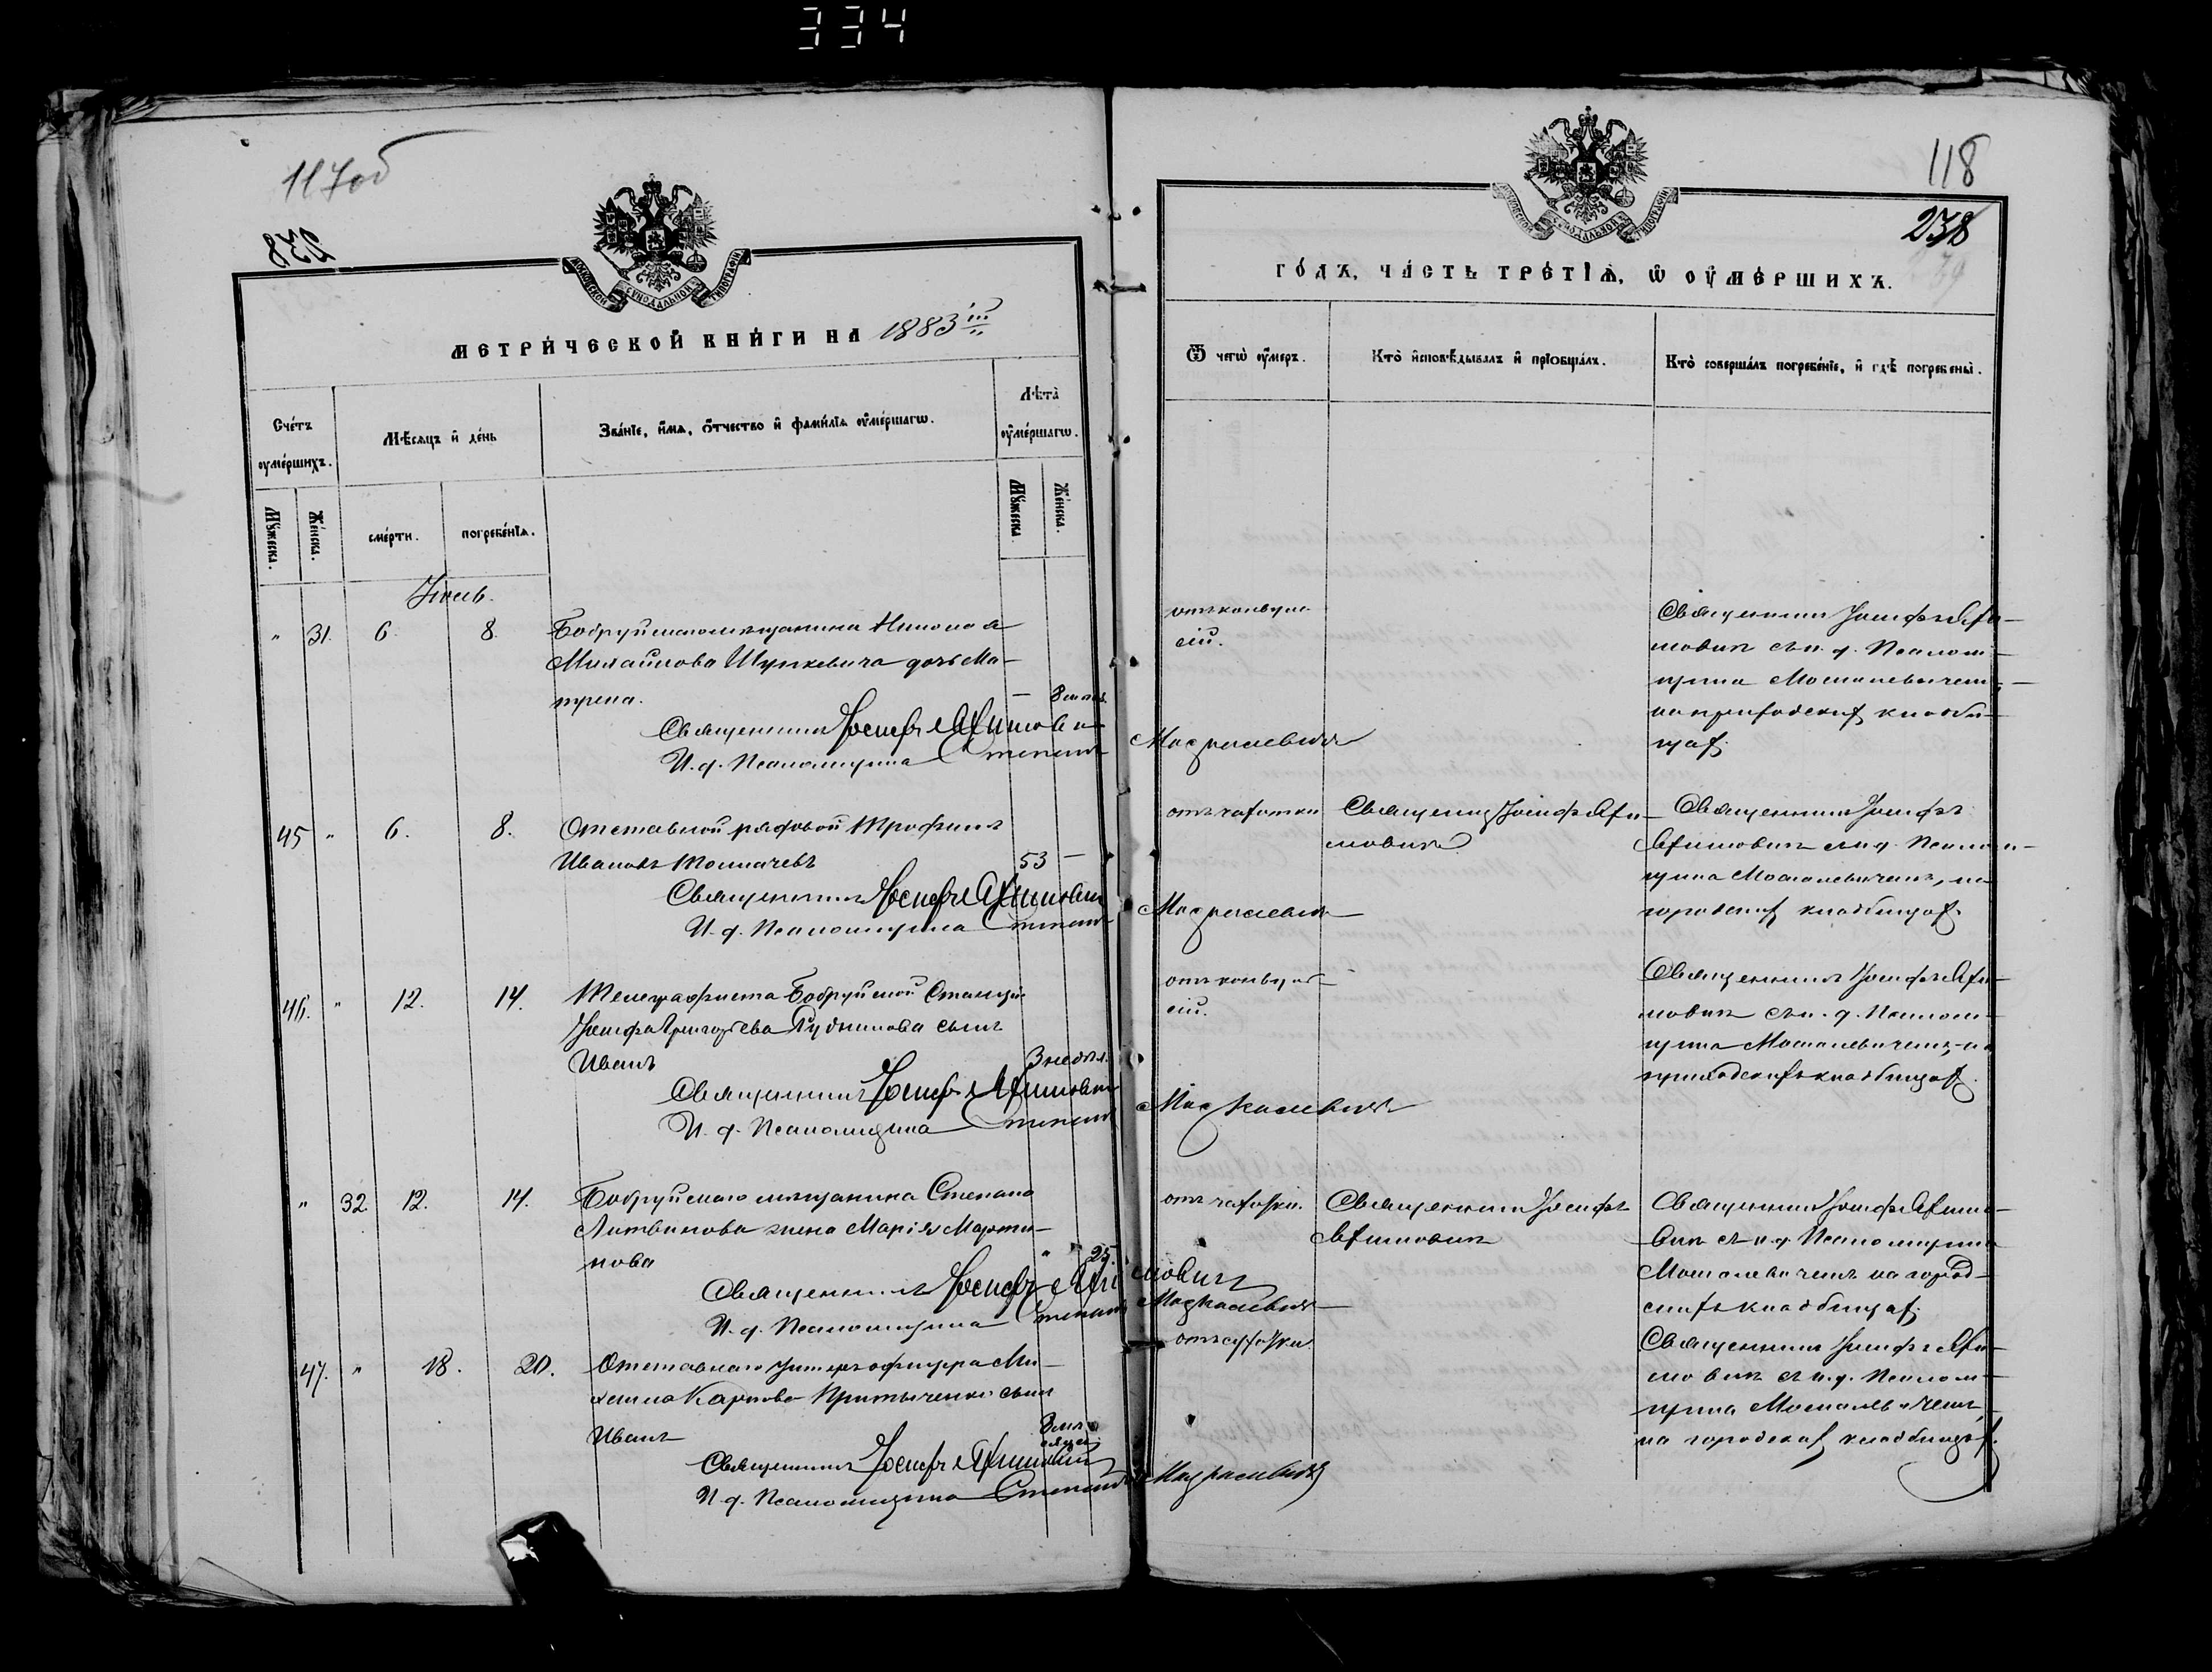 334
117об
238
МОСКОВСКОЙ СѴНОДАЛЬНОЙ ТИПОГРАФІИ
МЕТРИ́ЧЕСКОЙ КНИ́ГИ НА 1883 ІІІ
Сче́тъ оуме́ршихъ.
Мѣ́сяцъ и҆ де́нь
Зва́нїе, и҆́мѧ, ѻ҆́тчество и҆ фами́лїѧ оуме́ршагѡ.
Лѣта̀ оуме́ршагѡ.
Мꙋ́жеска.
Же́нска.
сме́рти.
погребе́нїѧ.
Мꙋ́жеска.
Же́нска.
Іюнь.
" 31. 6. 8. Бобруйскаго мѣщанина Николая
Михайлова Шункевича дочь Ма-
трена. — 8 мѣс.
Священникъ Іосифъ Яхимович
И. д. Псаломщика Степанъ Москалевичъ
45 " 6. 8. Отставной рядовой Трофимъ
Ивановъ Толмачевъ 53 —
Священникъ Іосифъ Яхимович
И. д. Псаломщика Степанъ Москалевичъ
46. " 12. 14. Телеграфиста Бобруйской Станціи
Іосифа Григорьева Рудникова сынъ
Иванъ 3 недѣл.
Священникъ Іосифъ Яхимович
И. д. Псаломщика Степанъ Москалевичъ
" 32. 12. 14. Бобруйскаго мѣщанина Степана
Литвинова жена Марія Марти-
нова " 25.
Священникъ Іосифъ Яхимовичъ
И. д. Псаломщика Степанъ Москалевичъ
47. " 18. 20. Отставнаго Унтеръ офицера Ми-
хаила Карпова Притыченко сынъ
Иванъ 8 мѣ-
сяц.
Священникъ Іосифъ Яхимович
И. д. Псаломщика Степанъ Москалевичъ
118
238
МОСКОВСКОЙ СѴНОДАЛЬНОЙ ТИПОГРАФІИ
ГО́ДЪ, ЧА́СТЬ ТРЕ́ТЇѦ, Ѡ ОУМЕ́РШИХЪ.
Ѿ чегѡ̀ оу́меръ.
Кто̀ и҆сповѣ́дывалъ и҆ прїобща́лъ.
Кто̀ соверша́лъ погребе́нїе, и҆ гдѣ̀ погребены̀.
отъ конвуль-
сій.
Священникъ Іосифъ Яхи-
мовичъ съ и. д. Псалом-
щика Москалевичемъ,
на приходских кладби-
щах.
отъ чахотки
Священник Іосифъ Яхи-
мовичъ
Священникъ Іосифъ
Яхимовичъ съ и. д. Псалом-
щика Москалевичемъ, на
городских кладбищах.
отъ конвуль-
сій.
Священникъ Іосифъ Яхи-
мовичъ съ и. д. Псалом-
щика Москалевичемъ, на
приходскихъ кладбищах.
отъ чахотки.
Священникъ Іосифъ
Яхимовичъ
Священникъ Іосифъ Яхимо-
вичъ съ и. д. Псаломщика
Москалевичемъ на город-
скихъ кладбищах.
Священникъ Іосифъ Яхи-
мовичъ съ и. д. Псалом-
щика Москалевичемъ,
на городских кладбищах.